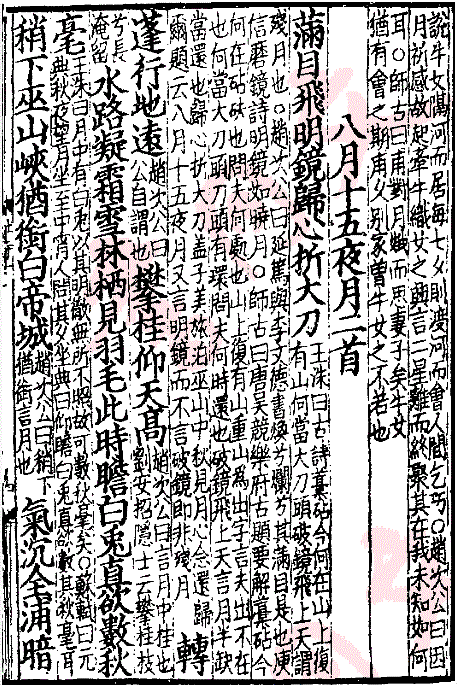 說牛女隔河而居每七夕則渡河而會人間乞巧○趙次公曰因
月祈感故起牽牛織女之興言二星雖而終聚其在我未知如何
耳○師古曰甫對月而思妻子矣牛女
猶有會之期甫久別家曾牛女之不若也
八月十五夜月二首
滿目飛明鏡歸心折大刀
王洙曰古詩藁砧今何在山上復
有山何當大刀頭破鏡飛上天謂
殘月也○趙次公曰延篤與李文德書煥爛兮其滿目長也庾
信磨鏡詩明鏡如曉月○師古曰唐吴兢樂府古題要解藁砧今
何在砧砆也問夫何處也山上復有山重山為出字言夫出不在
也何當大刀頭刀頭有環問夫何時還也破鏡飛上天言月半缺
當還也歸心折大刀蓋子美旅泊巫山中秋見月心念還歸
爾題云八月十五夜月又言明鏡而不言破鏡即非殘月
轉
蓬行地遠
趙次公曰
公自謂也
攀桂仰天高
趙次公曰言月中桂也
劉安招隱士云攀桂枝
兮長
淹留
水路疑霜雪林栖見羽毛此時瞻白兔真欲數秋
毫
王洙曰月中有白兔以其明徹無所不照故可數秋毫矣○蘇軾曰元
典秋夜望月坐至中宵人問其久坐典曰仰瞻白兔真欲數其秋毫耳
稍下巫山峽猶銜白帝城
趙次公曰稍下
猶銜言月也
氣沉全浦暗